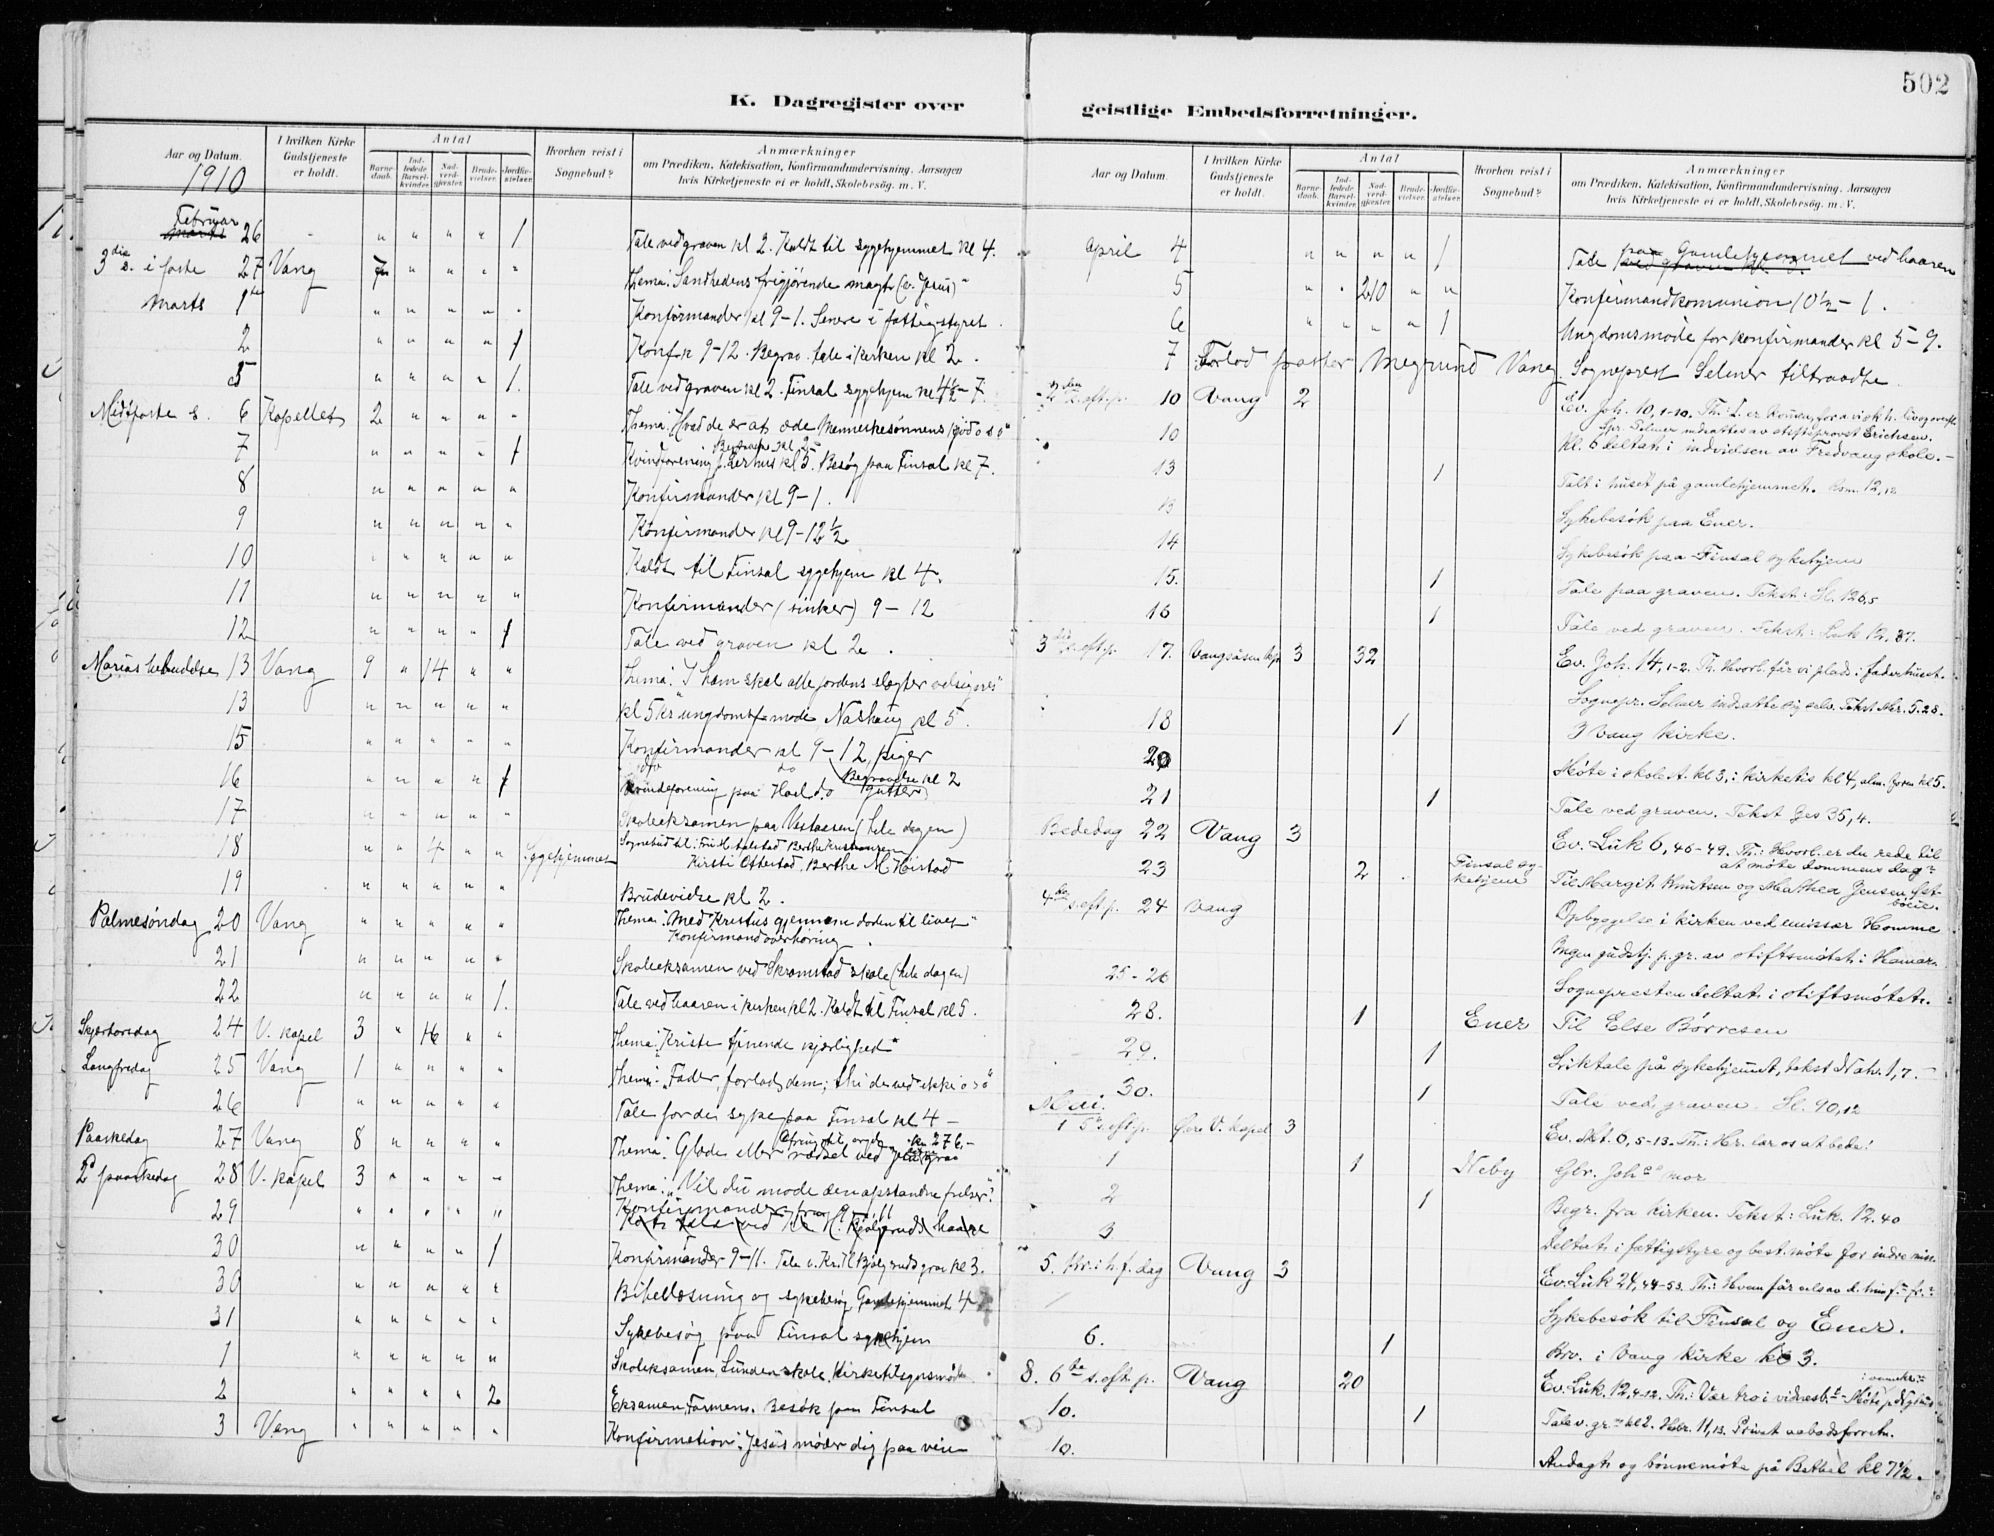 502
K. Dagregister over
Aar og Datum.
1910
I hvilken Kirke Gudstjeneste er holdt.
Antal
Barnedaab.
Indledede Barselkvinder.
Nadverdgjester.
Brudevielser.
Jordfæstelser.
Hvorhen reist i Sognebud?
Anmærkninger
om Prædiken, Katekisation, Konfirmandundervisning, Aarsagen
hvis Kirketjeneste ei er holdt, Skolebesøg. m. V.
Februar 26 - " " " " 1 Tale ved graven kl 2. Kaldt til sygehjemmet kl 4.
3die s. i faste 27 Vang " " " " Thema: "Sandhedens frigjørende magt (ev. Jesus)"
Marts 1ste " " " " " Konfirmander kl 9-1. Senere i fattigstyret.
2 " " " " 1 Konf. kl 9-12. Begrav. tale i kirken kl 2.
5 " " " " 1. Tale ved graven kl 2. Finsal sygehjem kl 4½-7.
Midtfaste s. 6 Kapellet 2 " " " " Thema: "Hvad de er at æde Menneskesønnens kjød o s o"
7 " " " " 1 Begravelse kl 2
Kvindforening kl 5. Besøg paa Finsal kl 7.
8 " " " " " Konfirmander kl 9-1.
9 " " " " " Konfirmander kl 9-12½
10 " " " " Kaldt til Finsal sygehjem kl 4.
11 " " " " " Konfirmander (sinker) 9-12
12 " " " " 1 Tale ved graven kl 2.
Marias bebudelse 13 Vang 9 " 14 " " Thema: "I ham skal alle jordens slægter velsignes"
13 " " " " " kl 5 ungdomsmøde Nashaug kl 5.
15 " " " " " Konfirmander kl 9-12, piger
16 " " " " 1 do do gutter Begravelse kl 2
Kvindeforening paa Hoel
17 " " " " " Skoleeksamen paa Vestaasen (hele dagen)
18 " " 4 " " Sygehjemmet Sognebud til: Berthe Kristiansen
Kirsti Ottestad, Berthe M. Høistad
19 " " " " " Brudevielse kl 2.
Palmesøndag 20 Vang " " " " " Thema: "Med Kristus gjennem døden til livet"
Konfirmandoverhøring.
21 " " " " " Skoleeksamen ved Skramstad skole (hele dagen)
22 " " " " 1. Tale ved baaren i kirken kl 2. Kaldt til Finsal kl 5.
Skjærtorsdag 24 V. kapel 3 " 16 " " Thema: "Kristi tjenende kjærlighed"
Langfredag 25 Vang 1 " " " " Thema: "Fader, forlad dem; thi de ved ikke o s o"
26 " " " " " Tale for de syke paa Finsal kl 4 -
Paaskedag 27 Vang 8 " " " " Ofring til orgel kr 276.-
Thema: Glæde eller rædsel ved Jesu grav
2 paaskedag 28 V. kapel 3 " " " " Thema: "Vil du møde den opstandne frelser".
29 " " " " " Konfirmander fra 9-11
30 " " " " 1 Konfirmander 9-11. Tale v. grav kl 3.
30 " " " " " Bibellæsning og sykebesøg Gamlehjemmet 4-7
31 " " " " " Sykebesøg paa Finsal sykehjem
1 " " " " " Skoleeksamen, Lunden skole. Kirketilsynsmøde
2 " " " " 2 Eksamen, Farmen. Besøk paa Finsal
3 Vang " " " " " Konfirmation: Jesus møder dig paa veien
geistlige Embedsforretninger.
Aar og Datum.
I hvilken Kirke Gudstjeneste er holdt.
Antal
Barnedaab.
Indledede Barselkvinder.
Nadverdgjester.
Brudevielser.
Jordfæstelser.
Hvorhen reist i Sognebud?
Anmærkninger
om Prædiken, Katekisation, Konfirmandundervisning, Aarsagen
hvis Kirketjeneste ei er holdt, Skolebesøg. m. V.
April 4 " " " " 1 Tale paa Gamlehjemmet ved baaren
5 " " 210 " " Konfirmandkomunion 10½-1.
6 " " " " 1 Ungdomsmøde for konfirmander kl 5-9.
7 Forlod pastor Megrund Vang Sogneprest Selmer tiltraadte.
2den s. eft. p. 10 Vang 2 Ev. Joh. 10, 1-10.
Spr. Selmer indsattes av stiftsprovst Erichsen.
10 kl. 6 deltat i indvielsen av Fredvang skole.-
13 1 Talt i huset på gamlehjemmet. Rom. 12, 12
13 Sykebesøk paa Ener.
14 Sykebesøk paa Finsal sykehjem
15. 1 Tale paa graven. Tekst: Sl. 126,5
16 1 Tale ved graven. Tekst: Luk 12, 37.
3die s. eft. p. 17. Vangsåsen kap. 3 32 Ev. Joh. 14, 1-2. Th. Hvorl. får vi plads i faderhuset.
Sognepr. Selmer indsatte sig selv. Tekst Mr. 5.28.
18 1 I Vang kirke.
20 Møte i skolest. kl 3, i kirketils. kl 4, alm. foren kl 5.
21 1 Tale ved graven. Tekst Jes 35,4.
Bededag 22 Vang 3 Ev. Luk 6, 46-49. Th.: Hvorl. er du rede til
at møte dommens dag"
23 2 Finsal sykehjem Til Margit Knutsen og Mathea Jensen
4de s. eft. p. 24 Vang Opbyggelse i kirken ved emissær Homme
Ingen gudstj. p. gr. av stiftsmøtet i Hamar.
25-26 Sognepresten deltat i stiftsmøtet.
28. 1 Ener Til Else Børresen
29. 1 Liktale på sykehjemmet, tekst Nah. 1,7.-
30. 1 Tale ved graven. Sl. 90,12
Mai.
1 5te s. eft. p. Øvre V. kapel 3 Ev. Mt. 6, 5-13. Th.: Hr. lær os at bede!
1 1 Neby Gbr. mor
2 1 Begr. fra kirken. Tekst: Luk. 12.40
3 Deltat i fattigstyre og best. møte for indre miss.
5. Kr. i h. f. dag Vang 3 Ev. Luk 24, 44-53.
Sykebesøk til Finsal og Ener.
6. 1 Brv. i Vang kirke kl 3.
8. 6te s. eft. p. Vang 20 Ev. Luk. 12, 4-12. Th.: Vær tro i vidnesb.
10. 1 Tale v. gr. kl 2. Hebr. 11,13. Privat
10. Andagt og bønnemøte på Bethel kl 7½.